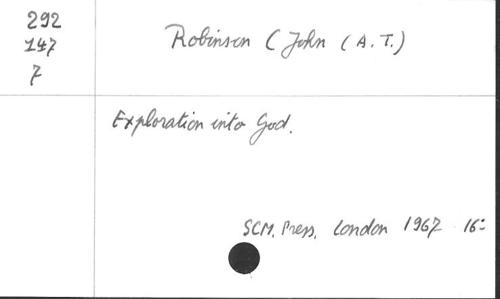 292
147
7
Robinson (John (A.T.)
Exploration into God.
SCM. Press. London 1967 16º